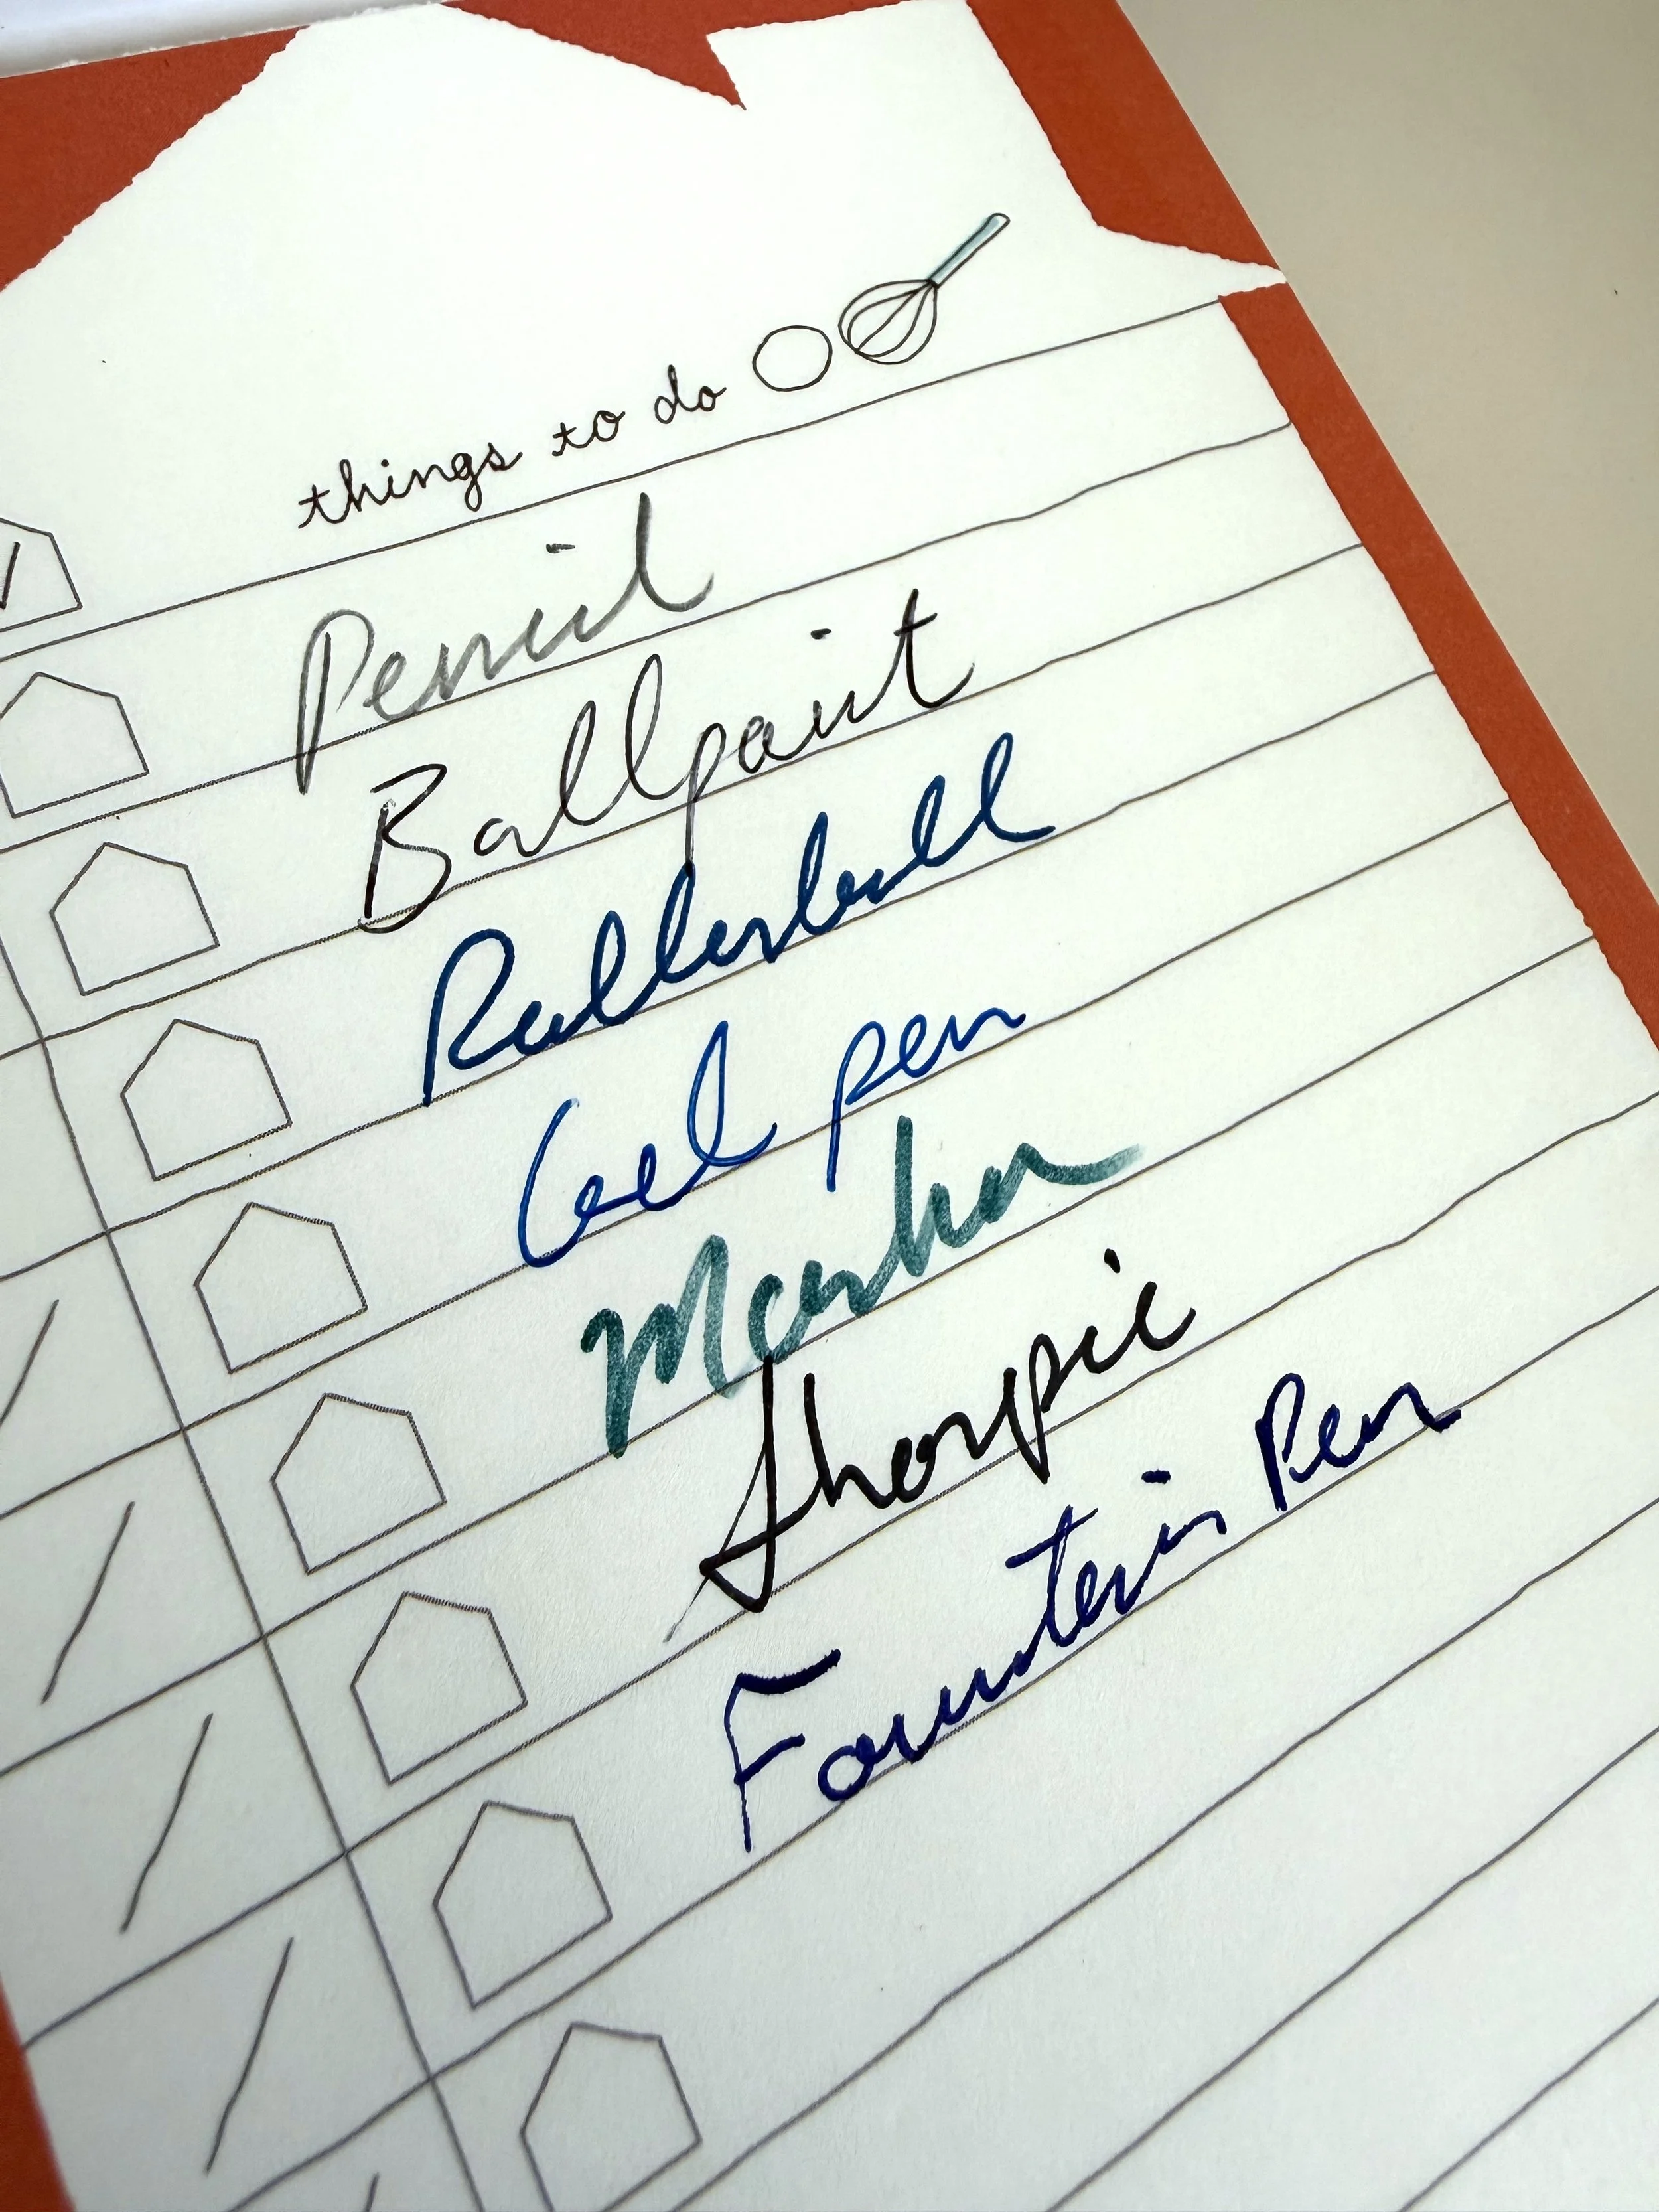 things to do
Pencil
Ballpoint
Rollerball
Gel pen
Marker
Sharpie
Fountain Pen